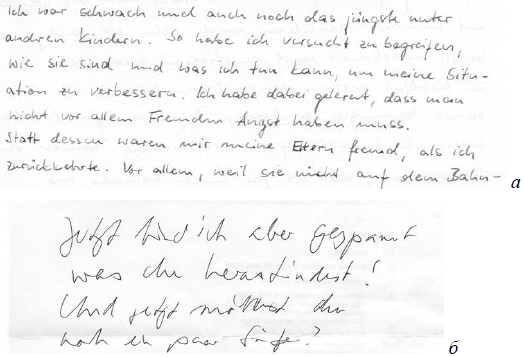 Ich war schwach und auch noch das jüngste unter
anderen Kindern. So habe ich versucht zu begreifen,
wie sie sind und was ich tun kann, um meine Situ-
ation zu verbessern. Ich habe dabei gelernt, dass man
nicht vor allem Fremden Angst haben muss.
Statt dessen waren mir meine Eltern fremd, als ich
zurückkehrte. Vor allem, weil sie nicht auf dem Bahn-
а
Jetzt bin ich aber gespannt
was du herausfindest!
Und jetzt du
noch ein paar Sätze?
б